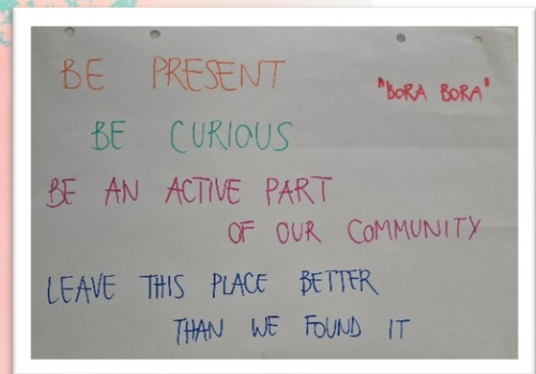 BE PRESENT
"BORA BORA"
BE CURIOUS
BE AN ACTIVE PART
OF OUR COMMUNITY
LEAVE THIS PLACE BETTER
THAN WE FOUND IT